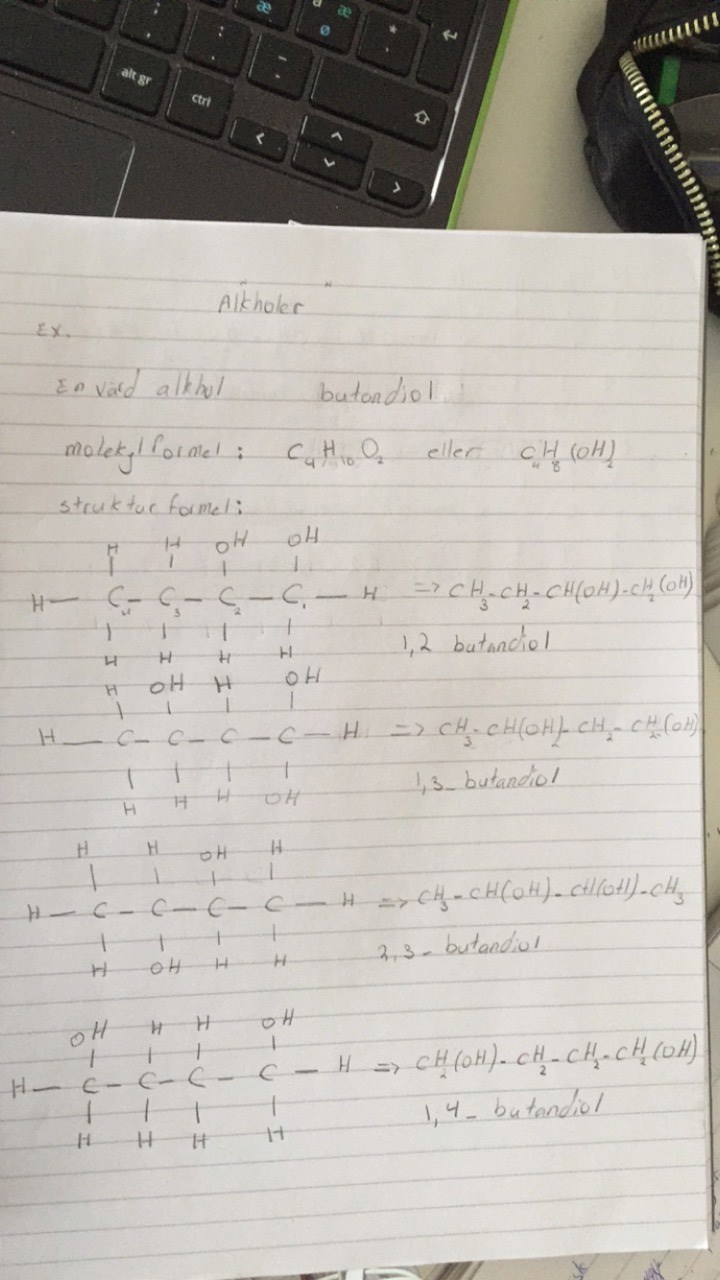 alt gr
ctrl
æ
æ
ø
Alkholer
Ex.
En værd alkhol butandiol
molekyl formel: C₄H₁₀O₂ eller C₄H₈(OH)₂
struktur formel:
H H OH OH
H — C₄ – C₃ – C₂ – C₁ — H => CH₃-CH₂-CH(OH)-CH₂(OH)
H H H H
1,2 butandiol
H OH H OH
H — C – C – C – C – H => CH₃-CH(OH)-CH₂-CH₂(OH)
H H H OH
1,3-butandiol
H H OH H
H – C – C – C – C – H => CH₃-CH(OH)-CH(OH)-CH₃
H OH H H
2,3-butandiol
OH H H OH
H – C – C – C – C – H => CH₂(OH)-CH₂-CH₂-CH₂(OH)
H H H H
1,4-butandiol